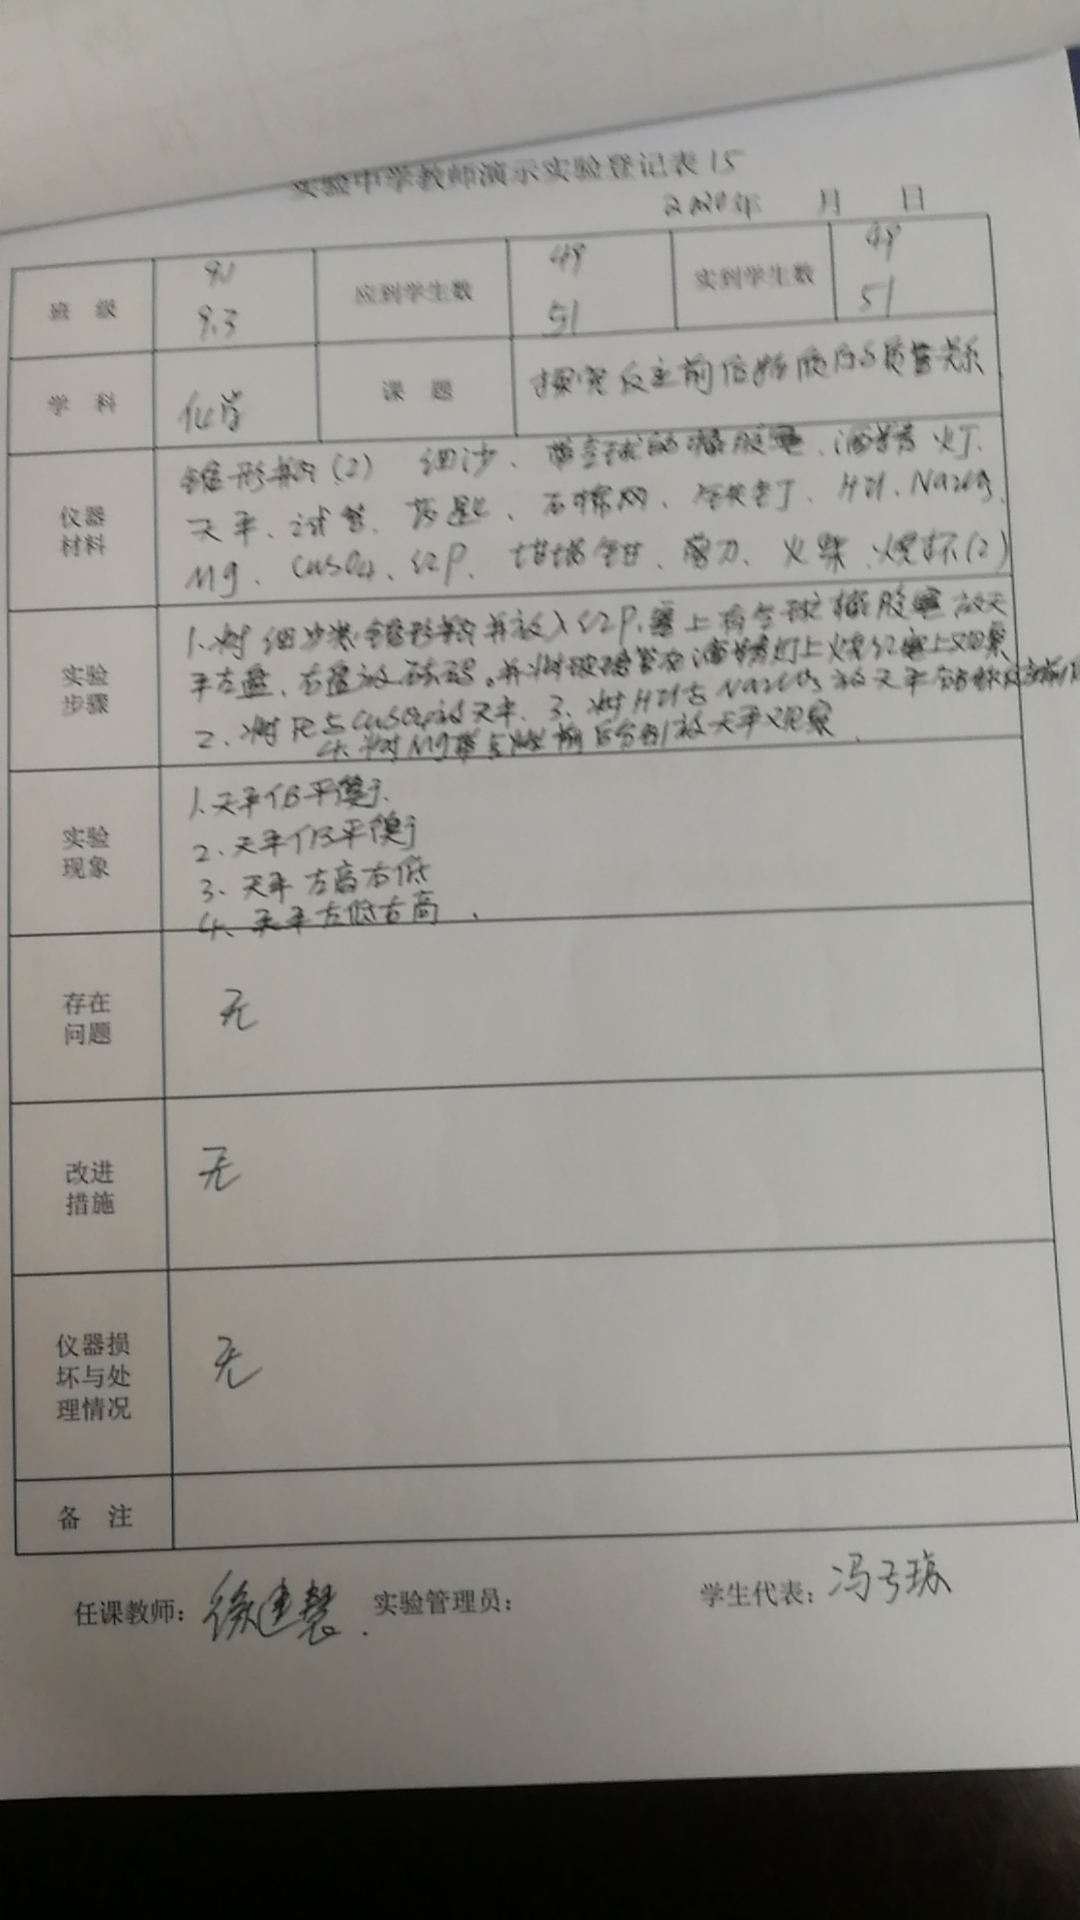 实验中学教师演示实验登记表15
2020年 月 日
班 级 9.1 9.3 应到学生数 49 51 实到学生数 49 51
学 科 化学 课 题 探究反应前后物质的质量关系
仪器材料
锥形瓶(2) 细沙、带气球的橡胶塞、酒精灯、
天平、试管、药匙、石棉网、铁钉、HCl、Na2CO3、
Mg、CuSO4、红P、坩埚钳、剪刀、火柴、烧杯(2)
实验步骤
1.将细沙装锥形瓶并放入红P,塞上有气球橡胶塞放天
平左盘、右盘放砝码。并将玻璃管在酒精灯上烧红塞上观察
2、将Fe与CuSO4放天平、3、将HCl与Na2CO3放天平
4、将Mg带点燃前后分别放天平观察
实验现象
1.天平仍平衡
2、天平仍平衡
3、天平左高右低
4、天平左低右高
存在问题 无
改进措施 无
仪器损坏与处理情况 无
备 注
任课教师: 徐建慧 实验管理员: 学生代表: 冯